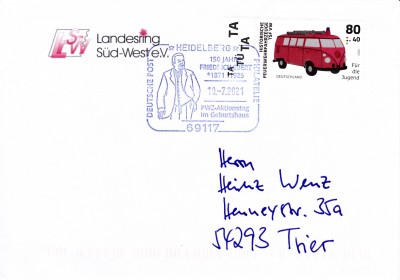 Landesring
Süd-West e.V.
DEUTSCHE POST
HEIDELBERG
PHILATELIE
150 JAHRE
FRIEDRICH EBERT
*1871 †1925
10.-7.2021
PWZ-Aktionstag
im Geburtshaus
69117
TATÜ TATA
80
+40
Für
die
Jugend
DEUTSCHLAND
Herrn
Heinz Wenz
Henneystr. 35a
54293 Trier